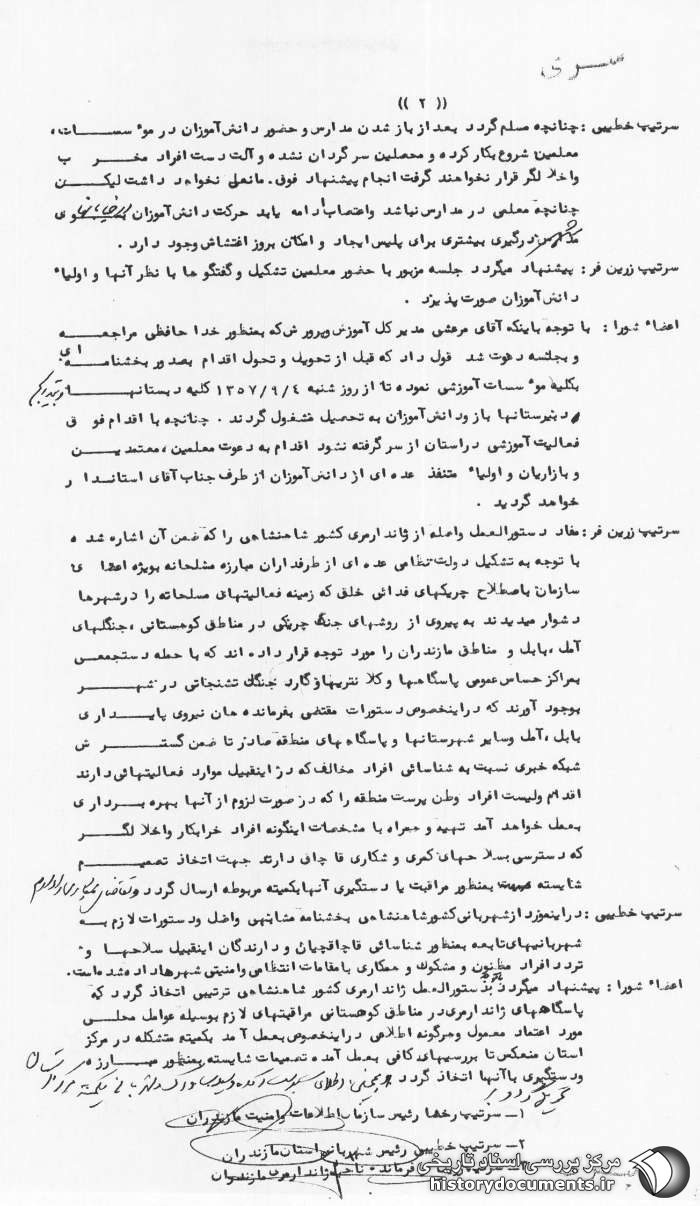 سری
(( ۲ ))
سرتیپ خطیبی : چنانچه مسلم گردد بعد از باز شدن مدارس و حضور دانش‌آموزان در موءسسات ،
معلمین شروع بکار کرده و محصلین سرگردان نشده و آلت دست افراد مخرب
واخلالگر قرار نخواهند گرفت انجام پیشنهاد فوق . مانعی نخواهد داشت لیکن
چنانچه معلمی در مدارس نباشد واعتصاب ادامه یابد حرکت دانش‌آموزان
درگیری بیشتری برای پلیس ایجاد و امکان بروز اغتشاش وجود دارد .
سرتیپ زرین فر : پیشنهاد میگردد جلسه مزبور با حضور معلمین تشکیل و گفتگو ها با نظر آنها و اولیاء
دانش‌آموزان صورت پذیرد .
اعضاء شورا : با توجه باینکه آقای مرعشی مدیر کل آموزش وپرورش که بمنظور خدا حافظی مراجعه
و بجلسه دعوت شد قول داد که قبل از تحویل و تحول اقدام بصدور بخشنامه ای
بکلیه موءسسات آموزشی نموده تا از روز شنبه ۱۳۵۷/۹/۴ کلیه دبستانها وبتدریج
دبیرستانها باز ودانش‌آموزان به تحصیل مشغول گردند . چنانچه با اقدام فوق
فعالیت آموزشی دراستان از سر گرفته نشود اقدام به دعوت معلمین ، معتمدین
و بازاریان و اولیاء متنفذ عده ای از دانش‌آموزان از طرف جناب آقای استاندار
خواهد گردید .
سرتیپ زرین فر : مفاد دستورالعمل واصله از ژاندارمری کشور شاهنشاهی را که ضمن آن اشاره شده
با توجه به تشکیل دولت نظامی عده ای از طرفداران مبارزه مسلحانه بویژه اعضای
سازمان باصطلاح چریکهای فدائی خلق که زمینه فعالیتهای مسلحانه را درشهرها
دشوار میدیدند به پیروی از روشهای جنگ چریکی در مناطق کوهستانی ، جنگلهای
آمل ، بابل و مناطق مازندران را مورد توجه قرار داده اند که با حمله دستجمعی
بمراکز حساس عمومی پاسگاهها و کلانتریها و گارد جنگل تشنجاتی در شهر
بوجود آورند که دراینخصوص دستورات مقتضی بفرمانده هان نیروی پایداری
بابل ، آمل وسایر شهرستانها و پاسگاههای منطقه صادر تا ضمن گسترش
شبکه خبری نسبت به شناسائی افراد مخالف که در اینقبیل موارد فعالیتهائی دارند
اقدام ولیست افراد وطن پرست منطقه را که در صورت لزوم از آنها بهره برداری
بعمل خواهد آمد تهیه و همراه با مشخصات اینگونه افراد خرابکار واخلالگر
که دسترسی بسلاحهای کمری و شکاری قاچاق دارند جهت اتخاذ تصمیم
شایسته بمنظور مراقبت یا دستگیری آنها بکمیته مربوطه ارسال گردد
سرتیپ خطیبی : دراینمورد از شهربانی کشور شاهنشاهی بخشنامه مشابهی واصل ودستورات لازم به
شهربانیهای تابعه بمنظور شناسائی قاچاقچیان و دارندگان اینقبیل سلاحها و
تردد افراد مظنون و مشکوک و همکاری با مقامات انتظامی وامنیتی شهرها داده شده است .
اعضاء شورا : پیشنهاد میگردد دستورالعمل ژاندارمری کشور شاهنشاهی ترتیبی اتخاذ گردد که
پاسگاههای ژاندارمری در مناطق کوهستانی مراقبتهای لازم بوسیله عوامل محلی
مورد اعتماد معمول وهرگونه اطلاعی دراینخصوص بعمل آمد بکمیته متشکله در مرکز
استان منعکس تا بررسیهای کافی بعمل آمده تصمیمات شایسته بمنظور مبارزه
ودستگیری باآنها اتخاذ گردد
۱ـ سرتیپ رخها رئیس سازمان اطلاعات وامنیت مازندران
۲ـ سرتیپ خطیبی رئیس شهربانی استان مازندران
فرمانده ناحیه ژاندارمری مازندران
مرکز بررسی اسناد تاریخی
historydocuments.ir